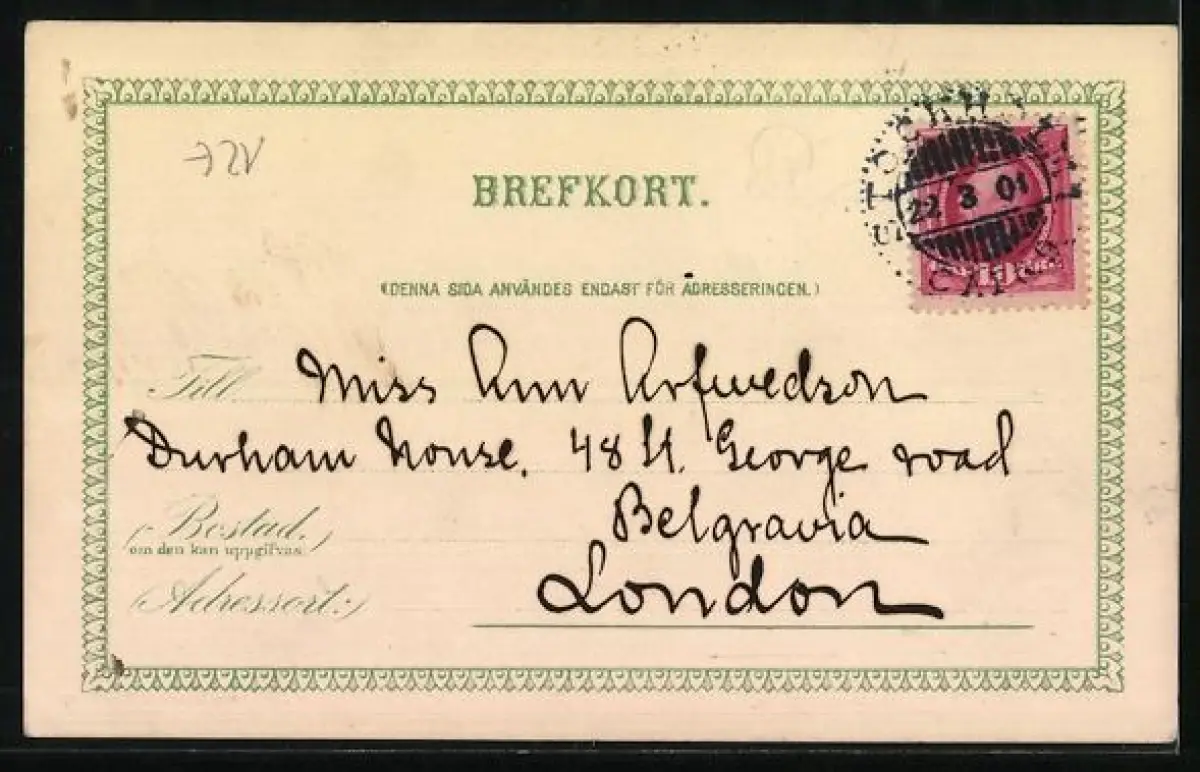 BREFKORT.
(DENNA SIDA ANVÄNDES ENDAST FÖR ADRESSERINGEN.)
22 3 01
Till Miss Ann Arfwedson
Durham House, 48 St. George road
Belgravia
(Bostad.)
om den kan uppgifvas
London
(Adressort:)